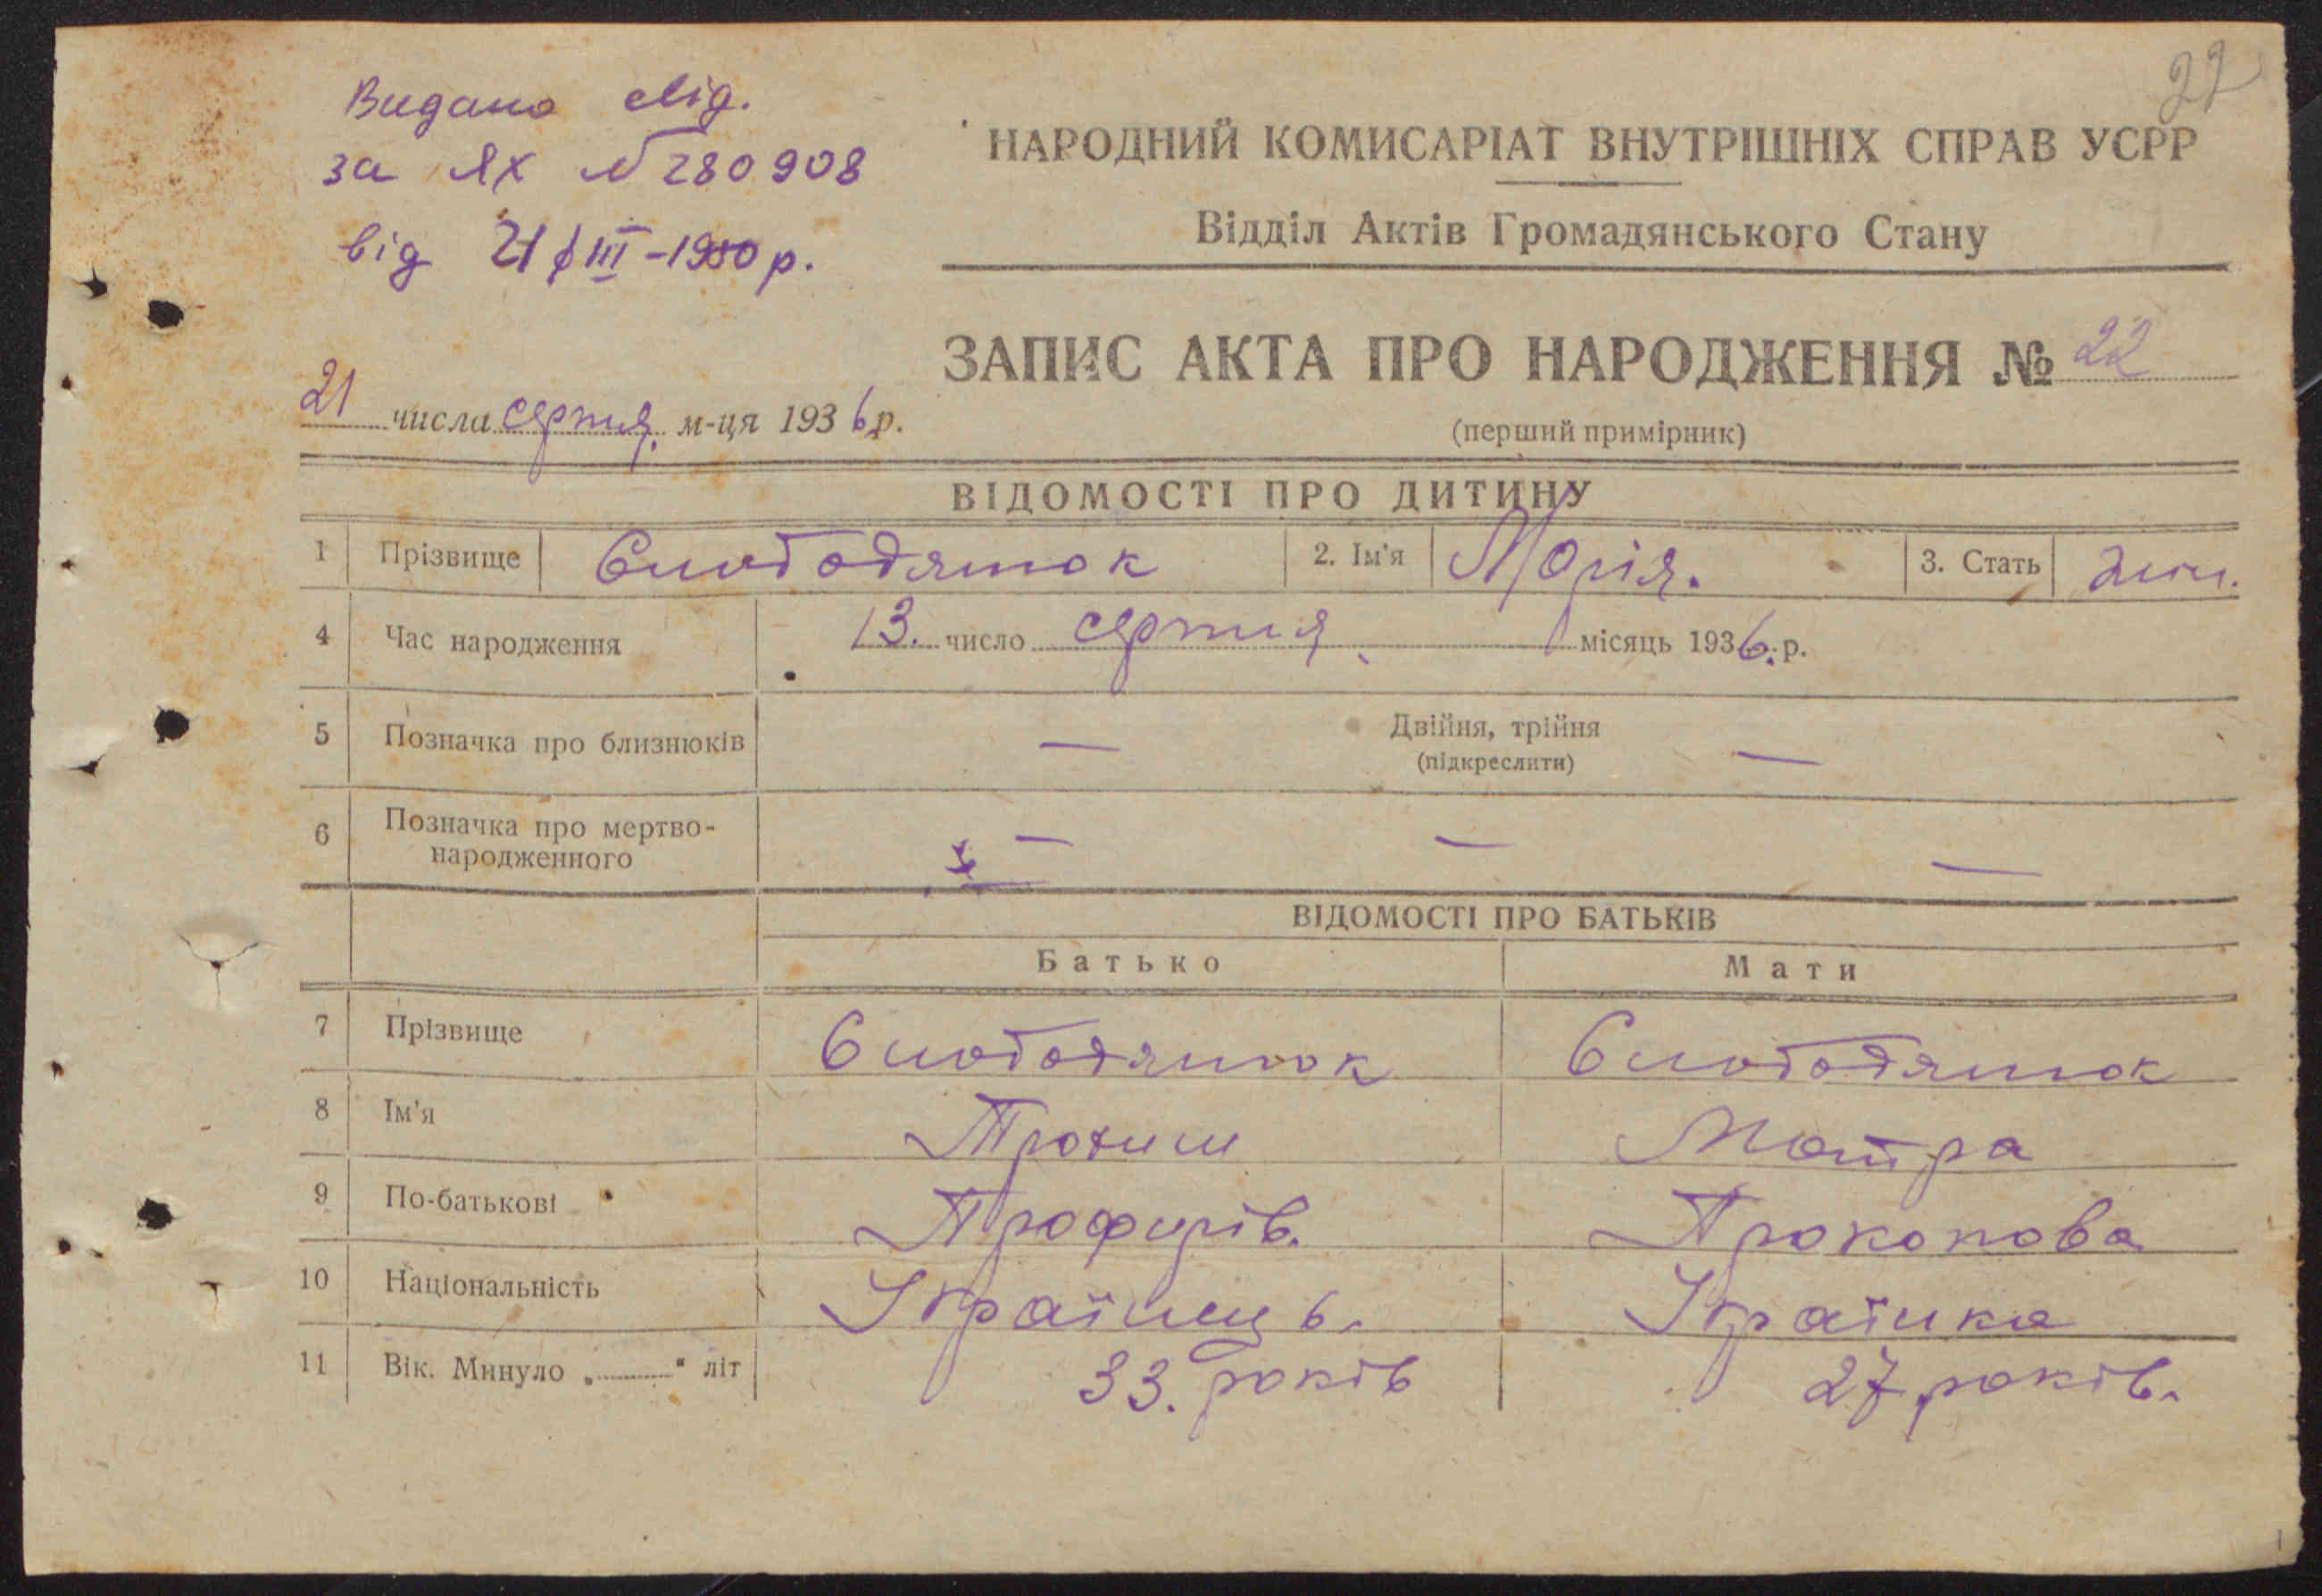 22
Видано свід.
за ЯХ № 280908
від 21/III-1950 р.
НАРОДНИЙ КОМИСАРІАТ ВНУТРІШНІХ СПРАВ УСРР
Відділ Актів Громадянського Стану
ЗАПИС АКТА ПРО НАРОДЖЕННЯ № 22
(перший примірник)
21 числа серпня м-ця 1936 р.
ВІДОМОСТІ ПРО ДИТИНУ
1 Прізвище Слободянюк 2. Ім'я Марія. 3. Стать жін.
4 Час народження 13. число серпня місяць 1936. р.
5 Позначка про близнюків — Двійня, трійня —
(підкреслити)
6 Позначка про мертво-
народженного — — —
ВІДОМОСТІ ПРО БАТЬКІВ
Батько Мати
7 Прізвище Слободянюк Слободянюк
8 Ім'я Трохим Мотря
9 По-батькові Профирів. Прокопова
10 Національність Українець. Українка
11 Вік. Минуло „ “ літ 33. років 27 років.